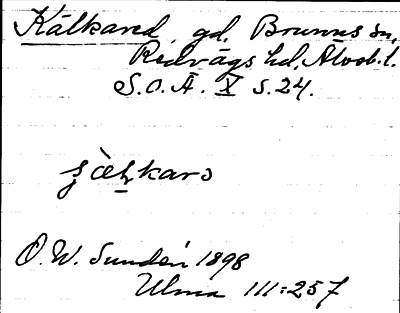 Kälkared, gd. Brunns sn,
Redvägs hd, Älvsb. l.
S.O.Ä. X s.24.
O.W. Sundén 1898
Ulma 111:257